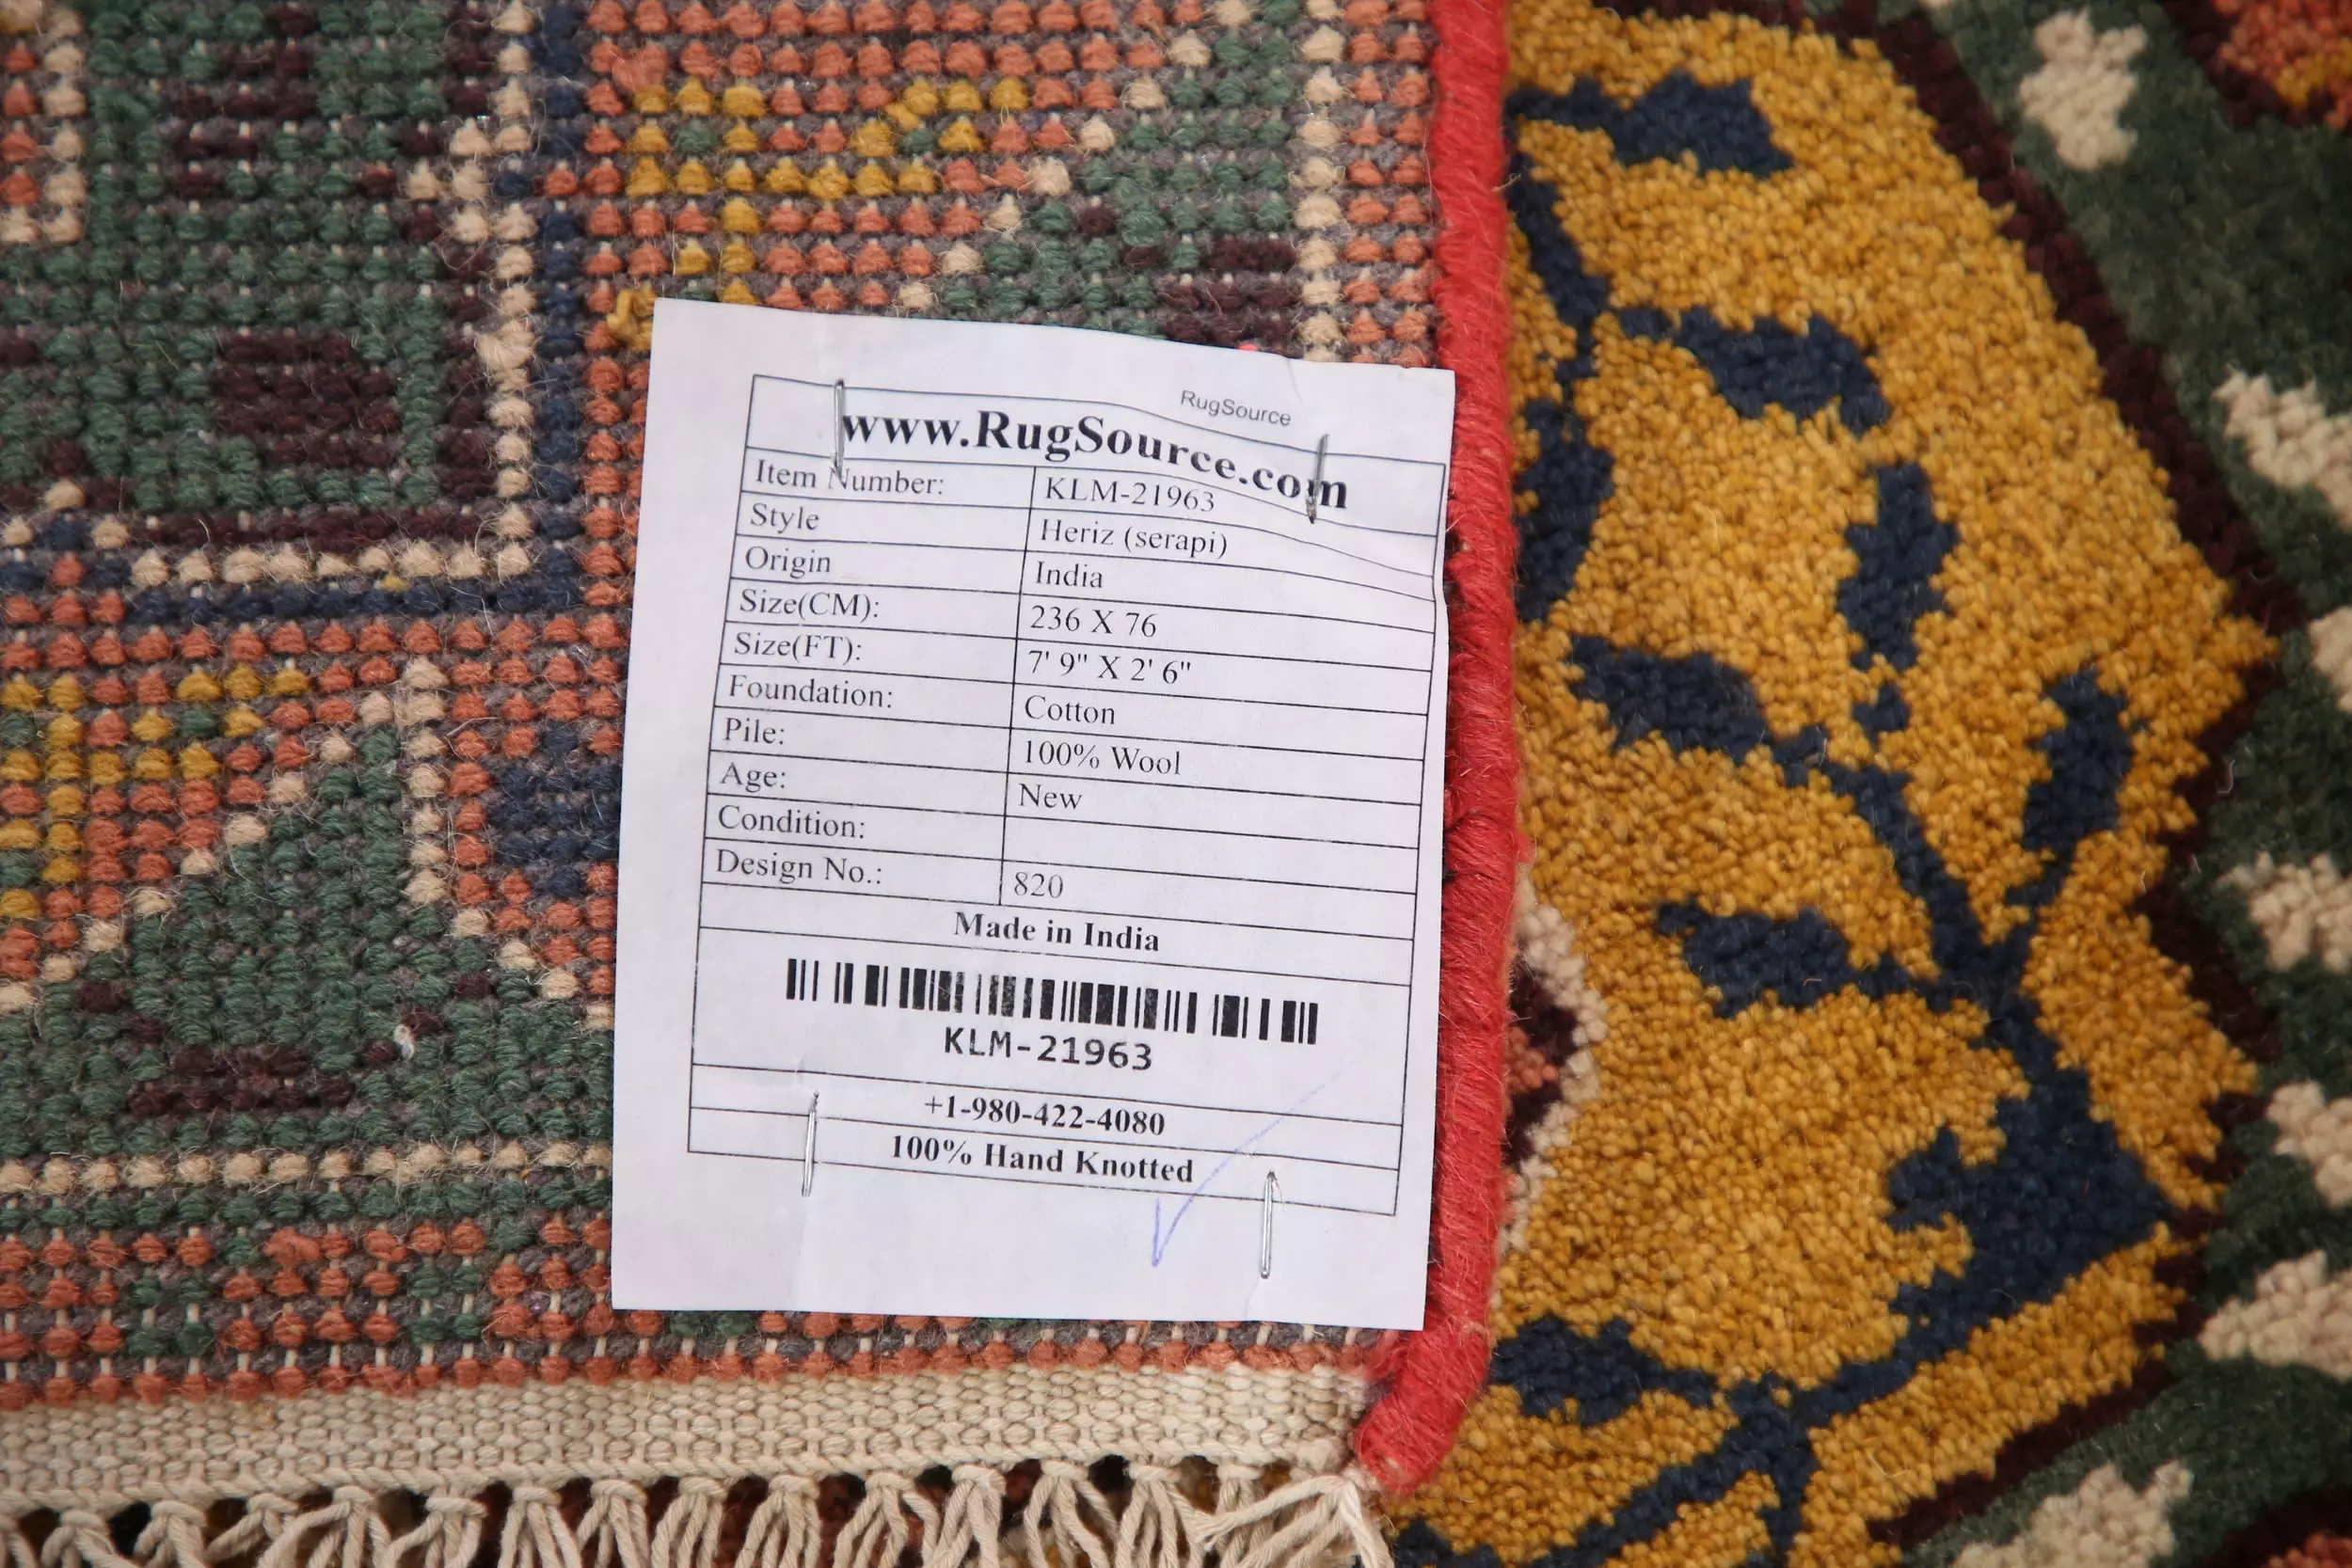 RugSource
www.RugSource.com
Item Number: KLM-21963
Style Heriz (serapi)
Origin India
Size(CM): 236 X 76
Size(FT): 7' 9" X 2' 6"
Foundation: Cotton
Pile: 100% Wool
Age: New
Condition:
Design No.: 820
Made in India
KLM-21963
+1-980-422-4080
100% Hand Knotted